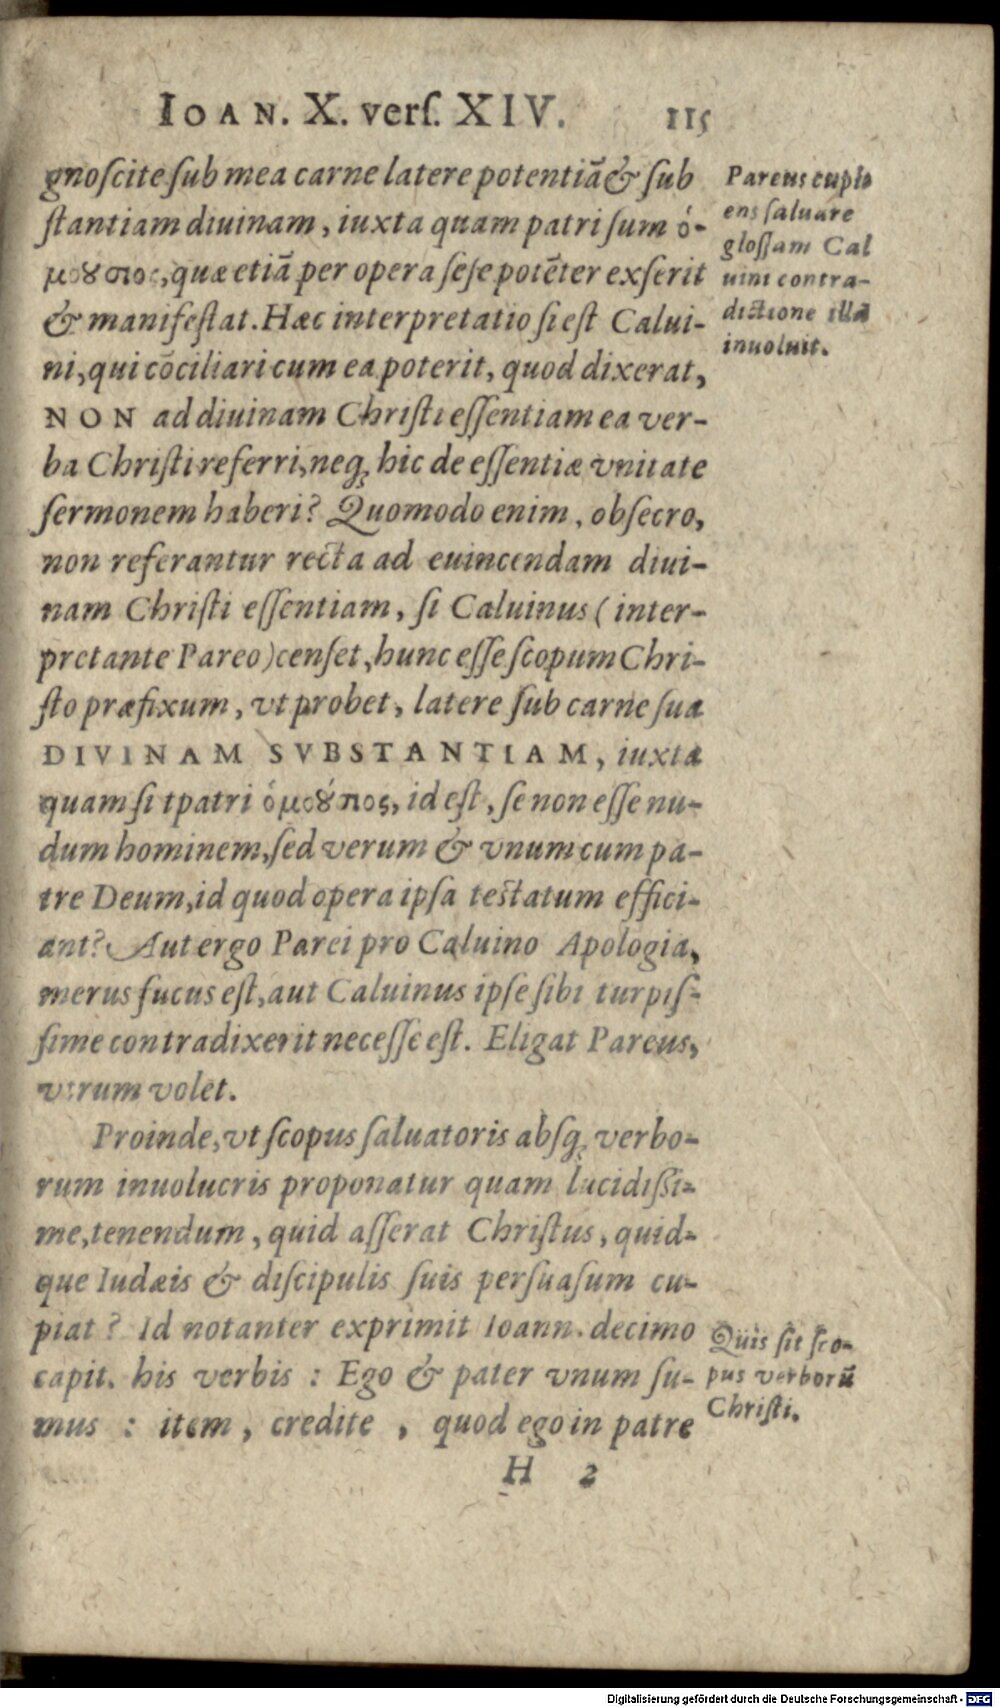 IOAN. X. verſ. XIV. 115
gnoſcite ſub mea carne latere potentiã & ſub
ſtantiam diuinam, iuxta quam patri ſum ὁ-
μούσιος, quæ etiã per opera ſeſe potẽter exſerit
& manifeſtat. Hæc interpretatio ſi eſt Calui-
ni, qui cõciliari cum ea poterit, quod dixerat,
NON ad diuinam Chriſti eſſentiam ea ver-
ba Chriſti referri, neq; hic de eſſentiæ vnitate
ſermonem haberi? Quomodo enim, obſecro,
non referantur recta ad euincendam diui-
nam Chriſti eſſentiam, ſi Caluinus (inter-
pretante Pareo) cenſet, hunc eſſe ſcopum Chri-
ſto præfixum, vt probet, latere ſub carne ſua
DIVINAM SVBSTANTIAM, iuxta
quam ſit patri ὁμούσιος, id eſt, ſe non eſſe nu-
dum hominem, ſed verum & vnum cum pa-
tre Deum, id quod opera ipſa teſtatum effici-
ant? Aut ergo Parei pro Caluino Apologia,
merus fucus eſt, aut Caluinus ipſe ſibi turpiſ-
ſime contradixerit neceſſe eſt. Eligat Pareus,
vtrum volet.
Proinde, vt ſcopus ſaluatoris abſq; verbo-
rum inuolucris proponatur quam lucidiſsi-
me, tenendum, quid aſſerat Chriſtus, quid-
que Iudæis & diſcipulis ſuis perſuaſum cu-
piat? Id notanter exprimit Ioann. decimo
capit. his verbis: Ego & pater vnum ſu-
mus: item, credite, quod ego in patre
H 2
Pareus cupi
ens ſaluare
gloſſam Cal
uini contra-
dictione illã
inuoluit.
Quis ſit ſco-
pus verborũ
Chriſti.
Digitalisierung gefördert durch die Deutsche Forschungsgemeinschaft - DFG